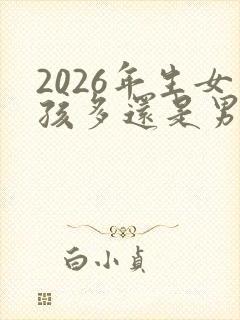 2026年生女
孩多還是男
白小貞